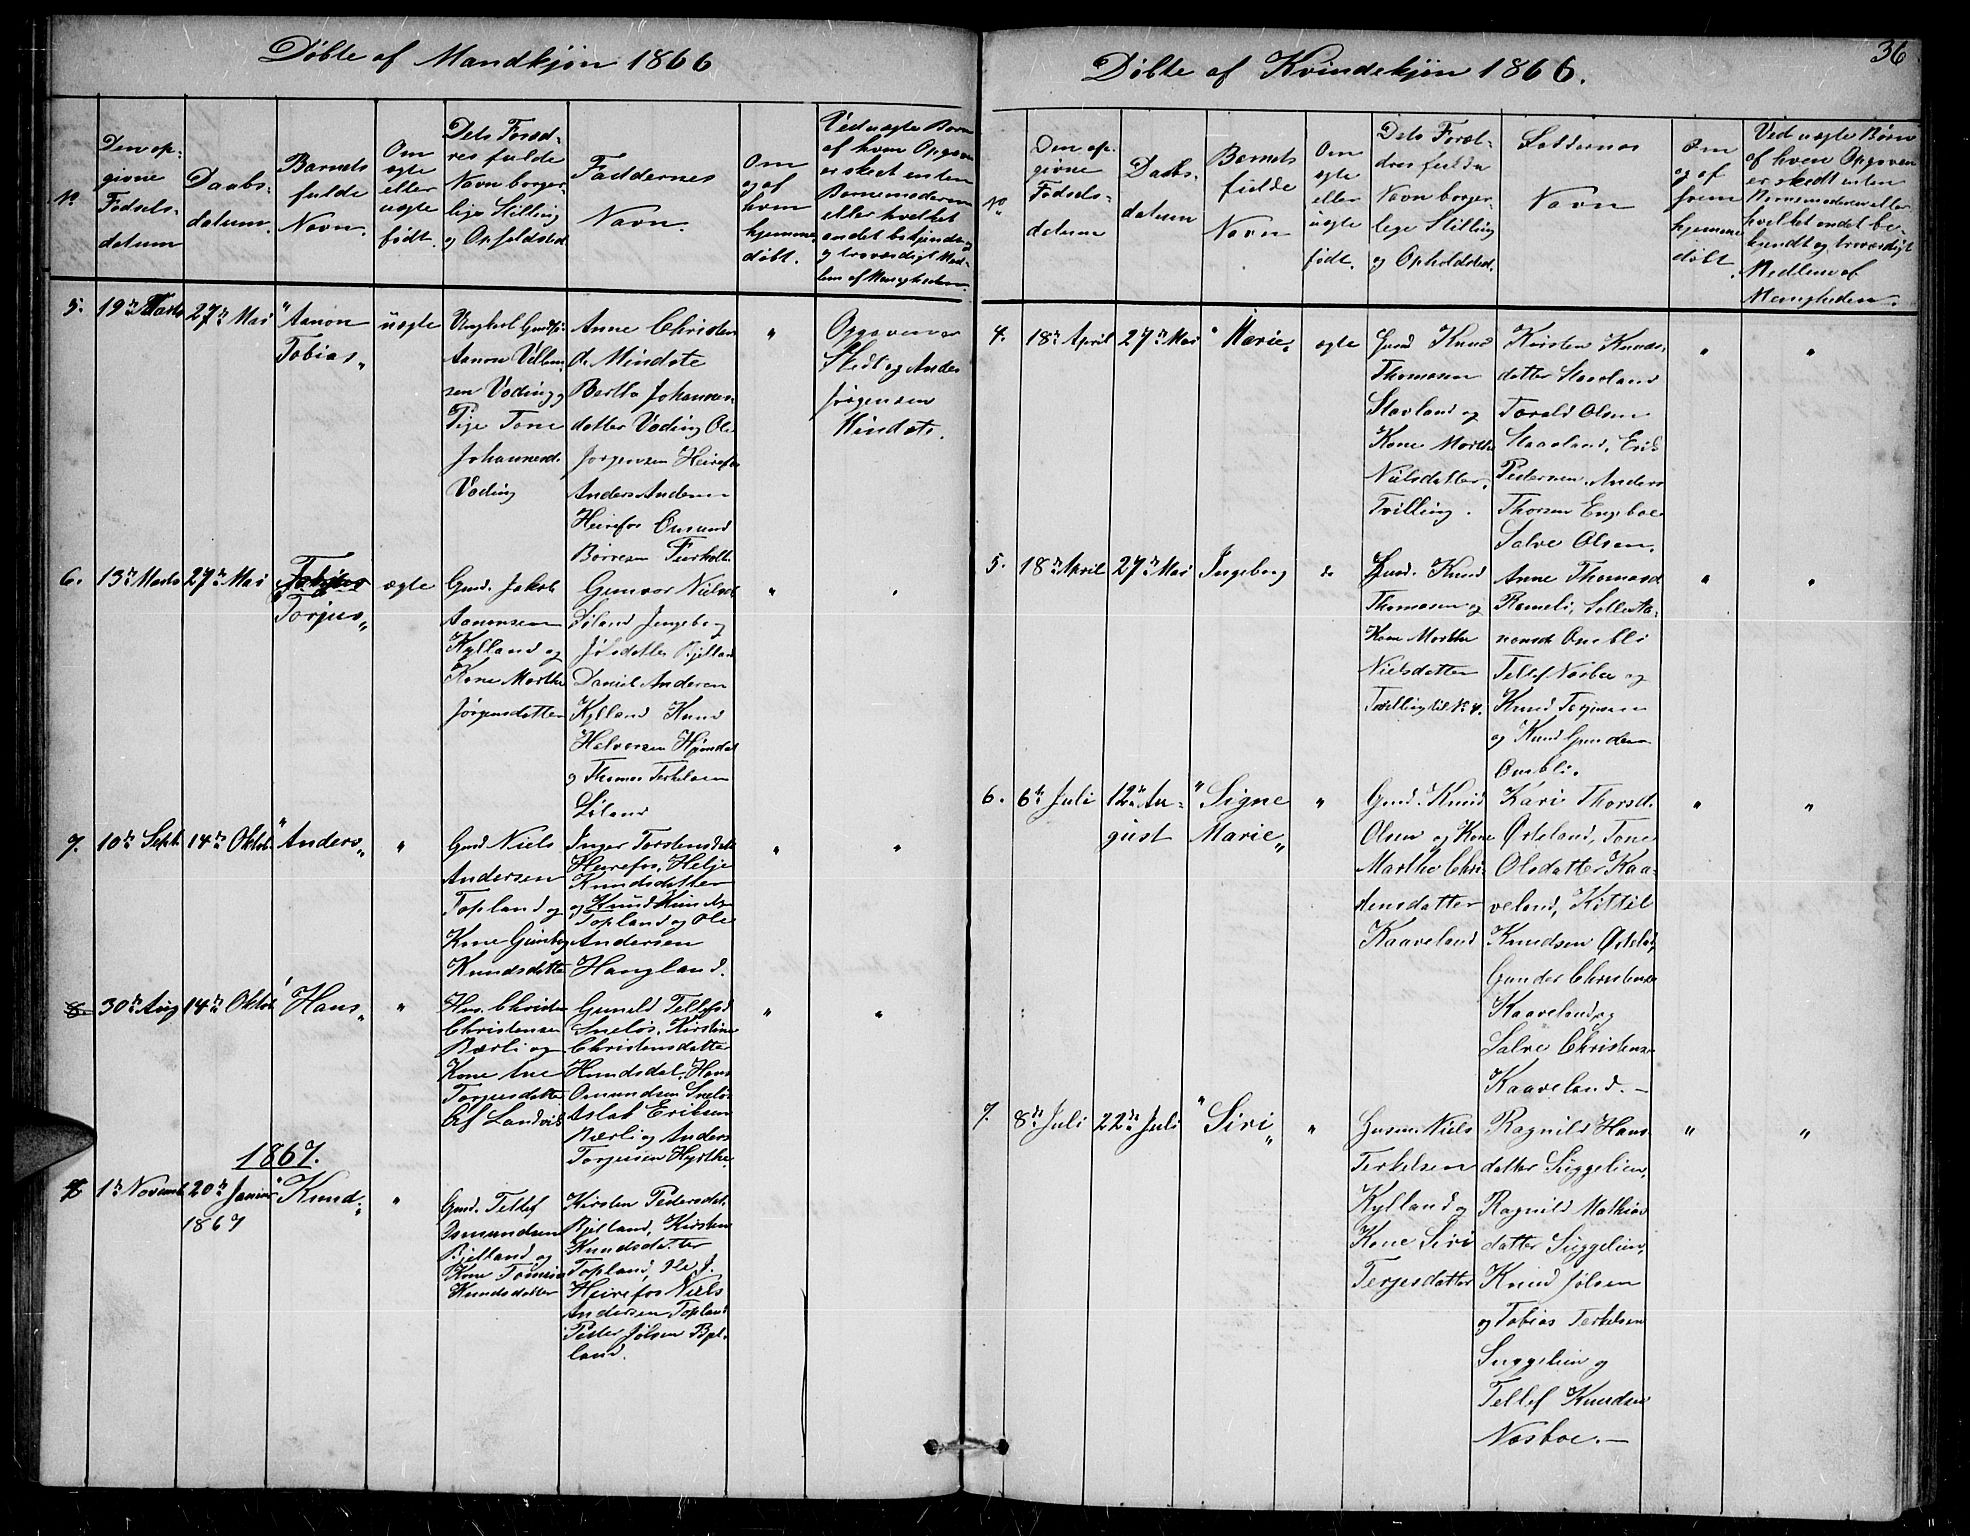 Døbte af Mandkjøn 1866
No
Den op-
givne
Fødsels-
datum
Daabs-
datum.
Barnets
fulde
Navn.
Om
ægte
eller
uægte
født.
Dets Foræl-
dres fulde
Navn borger-
lige Stilling
og Opholdsted
Faddernes
Navn.
Om
og af
hvem
hjemme-
døbt.
Ved uægte Børn
af hvem Opgaven
er skedt enten
Barnemoderen
eller hvilket
andet bekjendt
og troværdigt Med-
lem af Menigheden.
5.
19de Marts
27de Mai
Aanon
Tobias
uægte
Ungkal
Aanon Villum-
sen Vading og
Pige Tone
Johannesd.
Vading
Anne Christen
Berthe Johannes-
datter Vading Ole
Jørgensen Heirefos
Anders Andersen
Heirefos Omund
Børresen
"
Opgaven er
Skedt og Anders
Jørgensen
6.
13de Marts
27de Mai
Torjus
ægte
Gmd. Jakob
Aanonsen
Kylland og
Kone Marthe
Jørgensdatter
Gunvor Nielsd
Søland Ingeborg
Jølsdatter Bjelland
Daniel Andersen
Kylland Knud
Halvorsen
og Thomas Terkelsen
Søland
"
"
7.
10de Sept.
14de Oktob.
Anders
"
Gmd Niels
Andersen
Topland og
Kone Gunborg
Knudsdatter
Inger Torstensdatt
Heirefos, Helje
Knudsdatter
og Knud
Topland og Ole
Andersen
Haugland.
"
"
8.
30de Aug
14de Oktob
Hans
"
Hus. Christen
Christensen
Bærli og
Kone Ane
Torjusdatter
Af Landvik
Guneld Tellefsd
Sneløs, Kirstine
Christensdatter
Hundsdal, Hans
Omundsen Sneløs
Aslak Eriksen
Bærli og Anders
Torjusen
1867.
1de Novemb
20de Januar
1867
Knud
"
Gmd. Tellef
Osmundsen
Bjelland og
Kone
Knudsdatter
Kirsten Pedersdat.
Bjelland, Kirsten
Knudsdatter
Topland, Ole J.
Heirefos Niels
Andersen Topland
Peder Jølsen Bjel-
land.
36
Døbte af Kvindekjøn 1866.
No
Den op-
givne
Fødsels-
datum
Daabs-
datum
Barnets
fulde
Navn
Om
ægte
eller
uægte
født.
Dets Foræl-
dres fulde
Navn borger-
lige Stilling
og Opholdsted.
Faddernes
Navn
Om
og af
hvem
hjemme
døbt.
Ved uægte Børn
af hvem Opgaven
er skedt enten
Barnemoderen eller
hvilket andet be-
kjendt og troværdigt
Medlem af
Menigheden.
4.
18de April
27de Mai
Marie
ægte
Gmd Knud
Thomasen
Stavland og
Kone Marthe
Nielsdatter.
Tvilling.
Kirsten Knuds-
datter Staaland
Torald Olsen
Staaland, Erik
Pedersen, Anders
Thorsen Engeboe
Salve Olsen.
"
"
5.
18de April
27de Mai
Ingeborg
do
Gmd. Knud
Thomasen og
Kone Marthe
Nielsdatter
Tvilling til No 4.
Anne Thomasd
Rameli, Aa-
nonsd Ombli
Tellef Næsboe og
Knud Torjusen
og Knud Gundersen
Ombli.
"
"
6.
6te Juli
12te Au-
gust
Signe
Marie
"
Gmd. Knud
Olsen og Kone
Marthe Chri-
stensdatter
Kaaveland
Kari Thorsd.
Øteland, Tone
Olsdatter Kaa-
veland, Kittil
Knudsen
Gunder Christensen
Kaaveland og
Salve Christensen
Kaaveland.—
"
"
7.
8de Juli
22de Juli
Siri
"
Niels
Terkelsen
Kylland og
Kone Siri
Terjesdatter
Ragnild Hans-
datter Suggelien,
Ragnild Mathias
datter Suggelien,
Knud Jølsen
og Tobias Terkelsen
Suggelien og
Tellef Knudsen
Næsboe.—
"
"